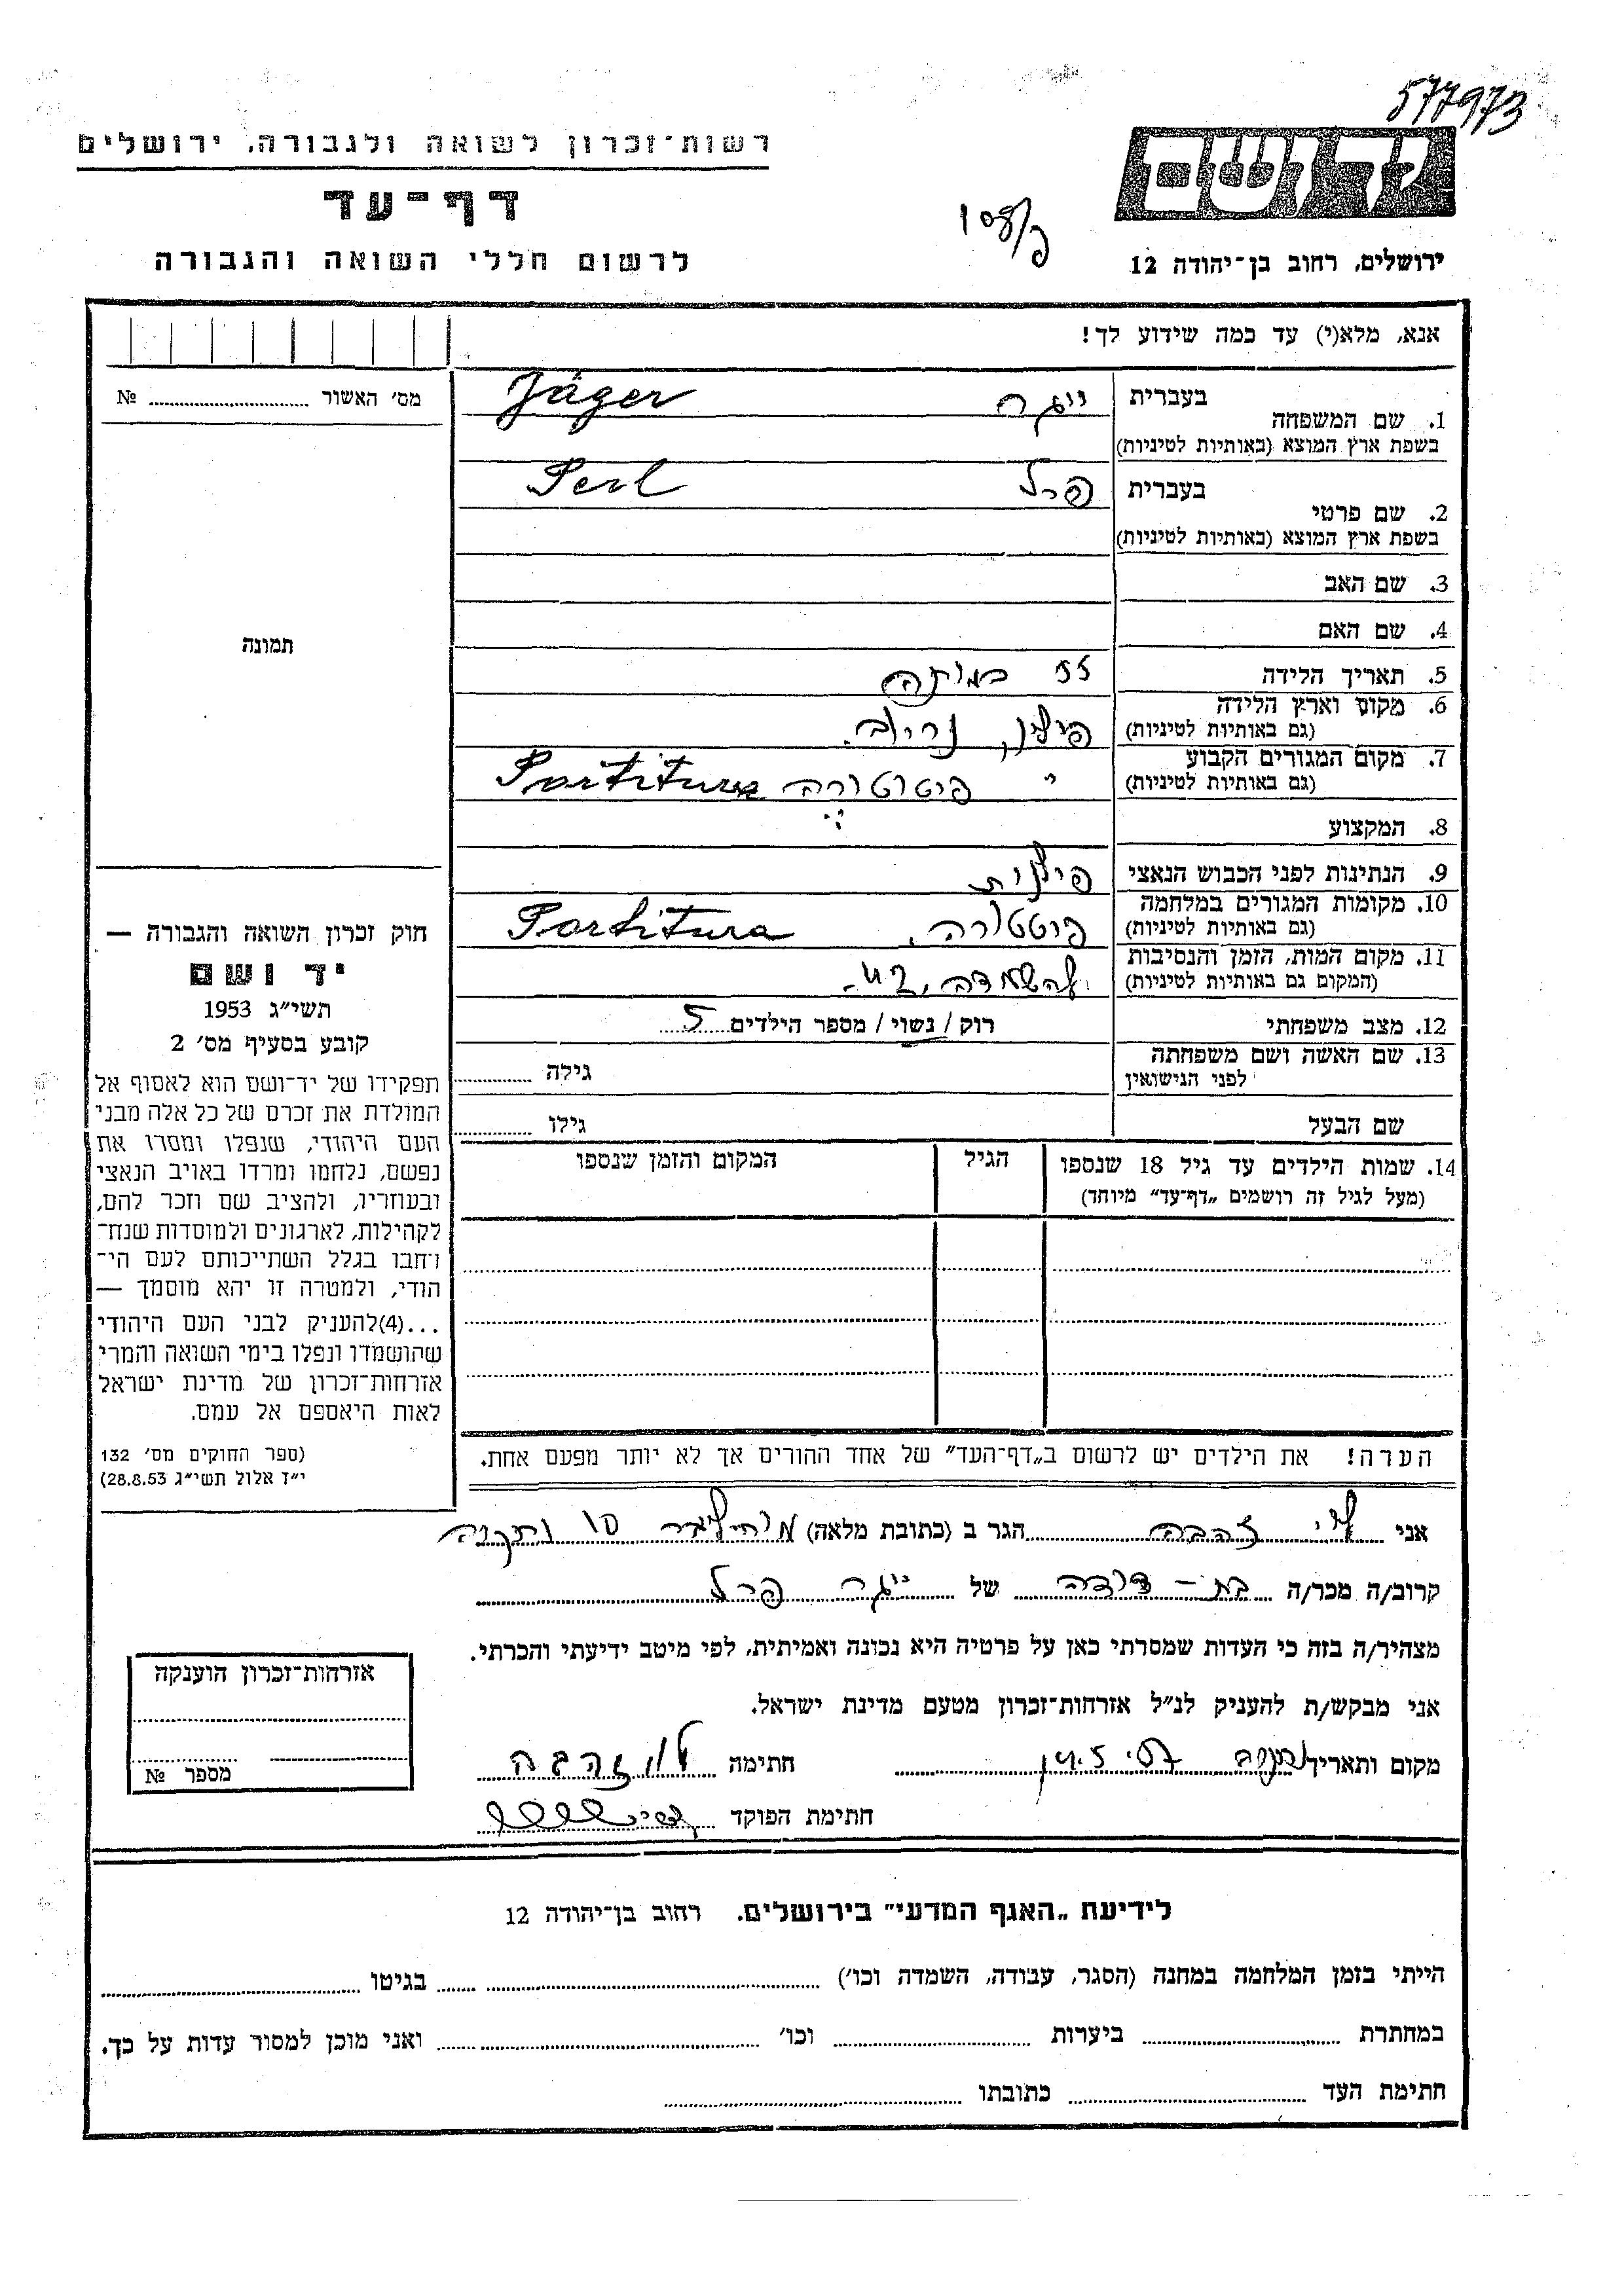 577973
רשות-זכרון לשואה ולגבורה, ירושלים
דף-עד
לרשום חללי השואה והגבורה
ידושם
ירושלים, רחוב בן-יהודה 12
אנא, מלא(י) עד כמה שידוע לך!
מס׳ האשור № 
תמונה
1. שם המשפחה בעברית ייגר Jäger
בשפת ארץ המוצא (באותיות לטיניות)
2. שם פרטי בעברית פרל Perl
בשפת ארץ המוצא (באותיות לטיניות)
3. שם האב
4. שם האם
5. תאריך הלידה 55 במותה
6. מקום וארץ הלידה פולין,
(גם באותיות לטיניות)
7. מקום המגורים הקבוע " Portitura
(גם באותיות לטיניות)
8. המקצוע
9. הנתינות לפני הכבוש הנאצי פולנית
10. מקומות המגורים במלחמה Portitura
(גם באותיות לטיניות)
11. מקום המות, הזמן והנסיבות
(המקום גם באותיות לטיניות)
12. מצב משפחתי רוק / נשוי / מספר הילדים 5
13. שם האשה ושם משפחתה גילה
לפני הנישואין
שם הבעל גילו
14. שמות הילדים עד גיל 18 שנספו הגיל המקום והזמן שנספו
(מעל לגיל זה רושמים „דף-עד” מיוחד)
הערה! את הילדים יש לרשום ב„דף-העד” של אחד ההורים אך לא יותר מפעם אחת.
חוק זכרון השואה והגבורה —
יד ושם
תשי״ג 1953
קובע בסעיף מס׳ 2
תפקידו של יד-ושם הוא לאסוף אל
המולדת את זכרם של כל אלה מבני
העם היהודי, שנפלו ומסרו את
נפשם, נלחמו ומרדו באויב הנאצי
ובעוזריו, ולהציב שם וזכר להם,
לקהילות, לארגונים ולמוסדות שנח-
רחבו בגלל השתייכותם לעם הי-
הודי, ולמטרה זו יהא מוסמך —
...(4)להעניק לבני העם היהודי
שהושמדו ונפלו בימי השואה והמרי
אזרחות-זכרון של מדינת ישראל
לאות היאספם אל עמם.
(ספר החוקים מס׳ 132
י״ז אלול תשי״ג 28.8.53)
אני זהבה הגר ב (כתובת מלאה)
קרוב/ה מכר/ה בת-דודה של ייגר פרל
מצהיר/ה בזה כי העדות שמסרתי כאן על פרטיה היא נכונה ואמיתית, לפי מיטב ידיעתי והכרתי.
אני מבקש/ת להעניק לנ״ל אזרחות-זכרון מטעם מדינת ישראל.
מקום ותאריך חתימה זהבה
חתימת הפוקד
אזרחות-זכרון הוענקה
מספר №
לידיעת „האגף המדעי” בירושלים. רחוב בן-יהודה 12
הייתי בזמן המלחמה במחנה (הסגר, עבודה, השמדה וכו׳) בגיטו
במחתרת ביערות וכו׳ ואני מוכן למסור עדות על כך.
חתימת העד כתובתו